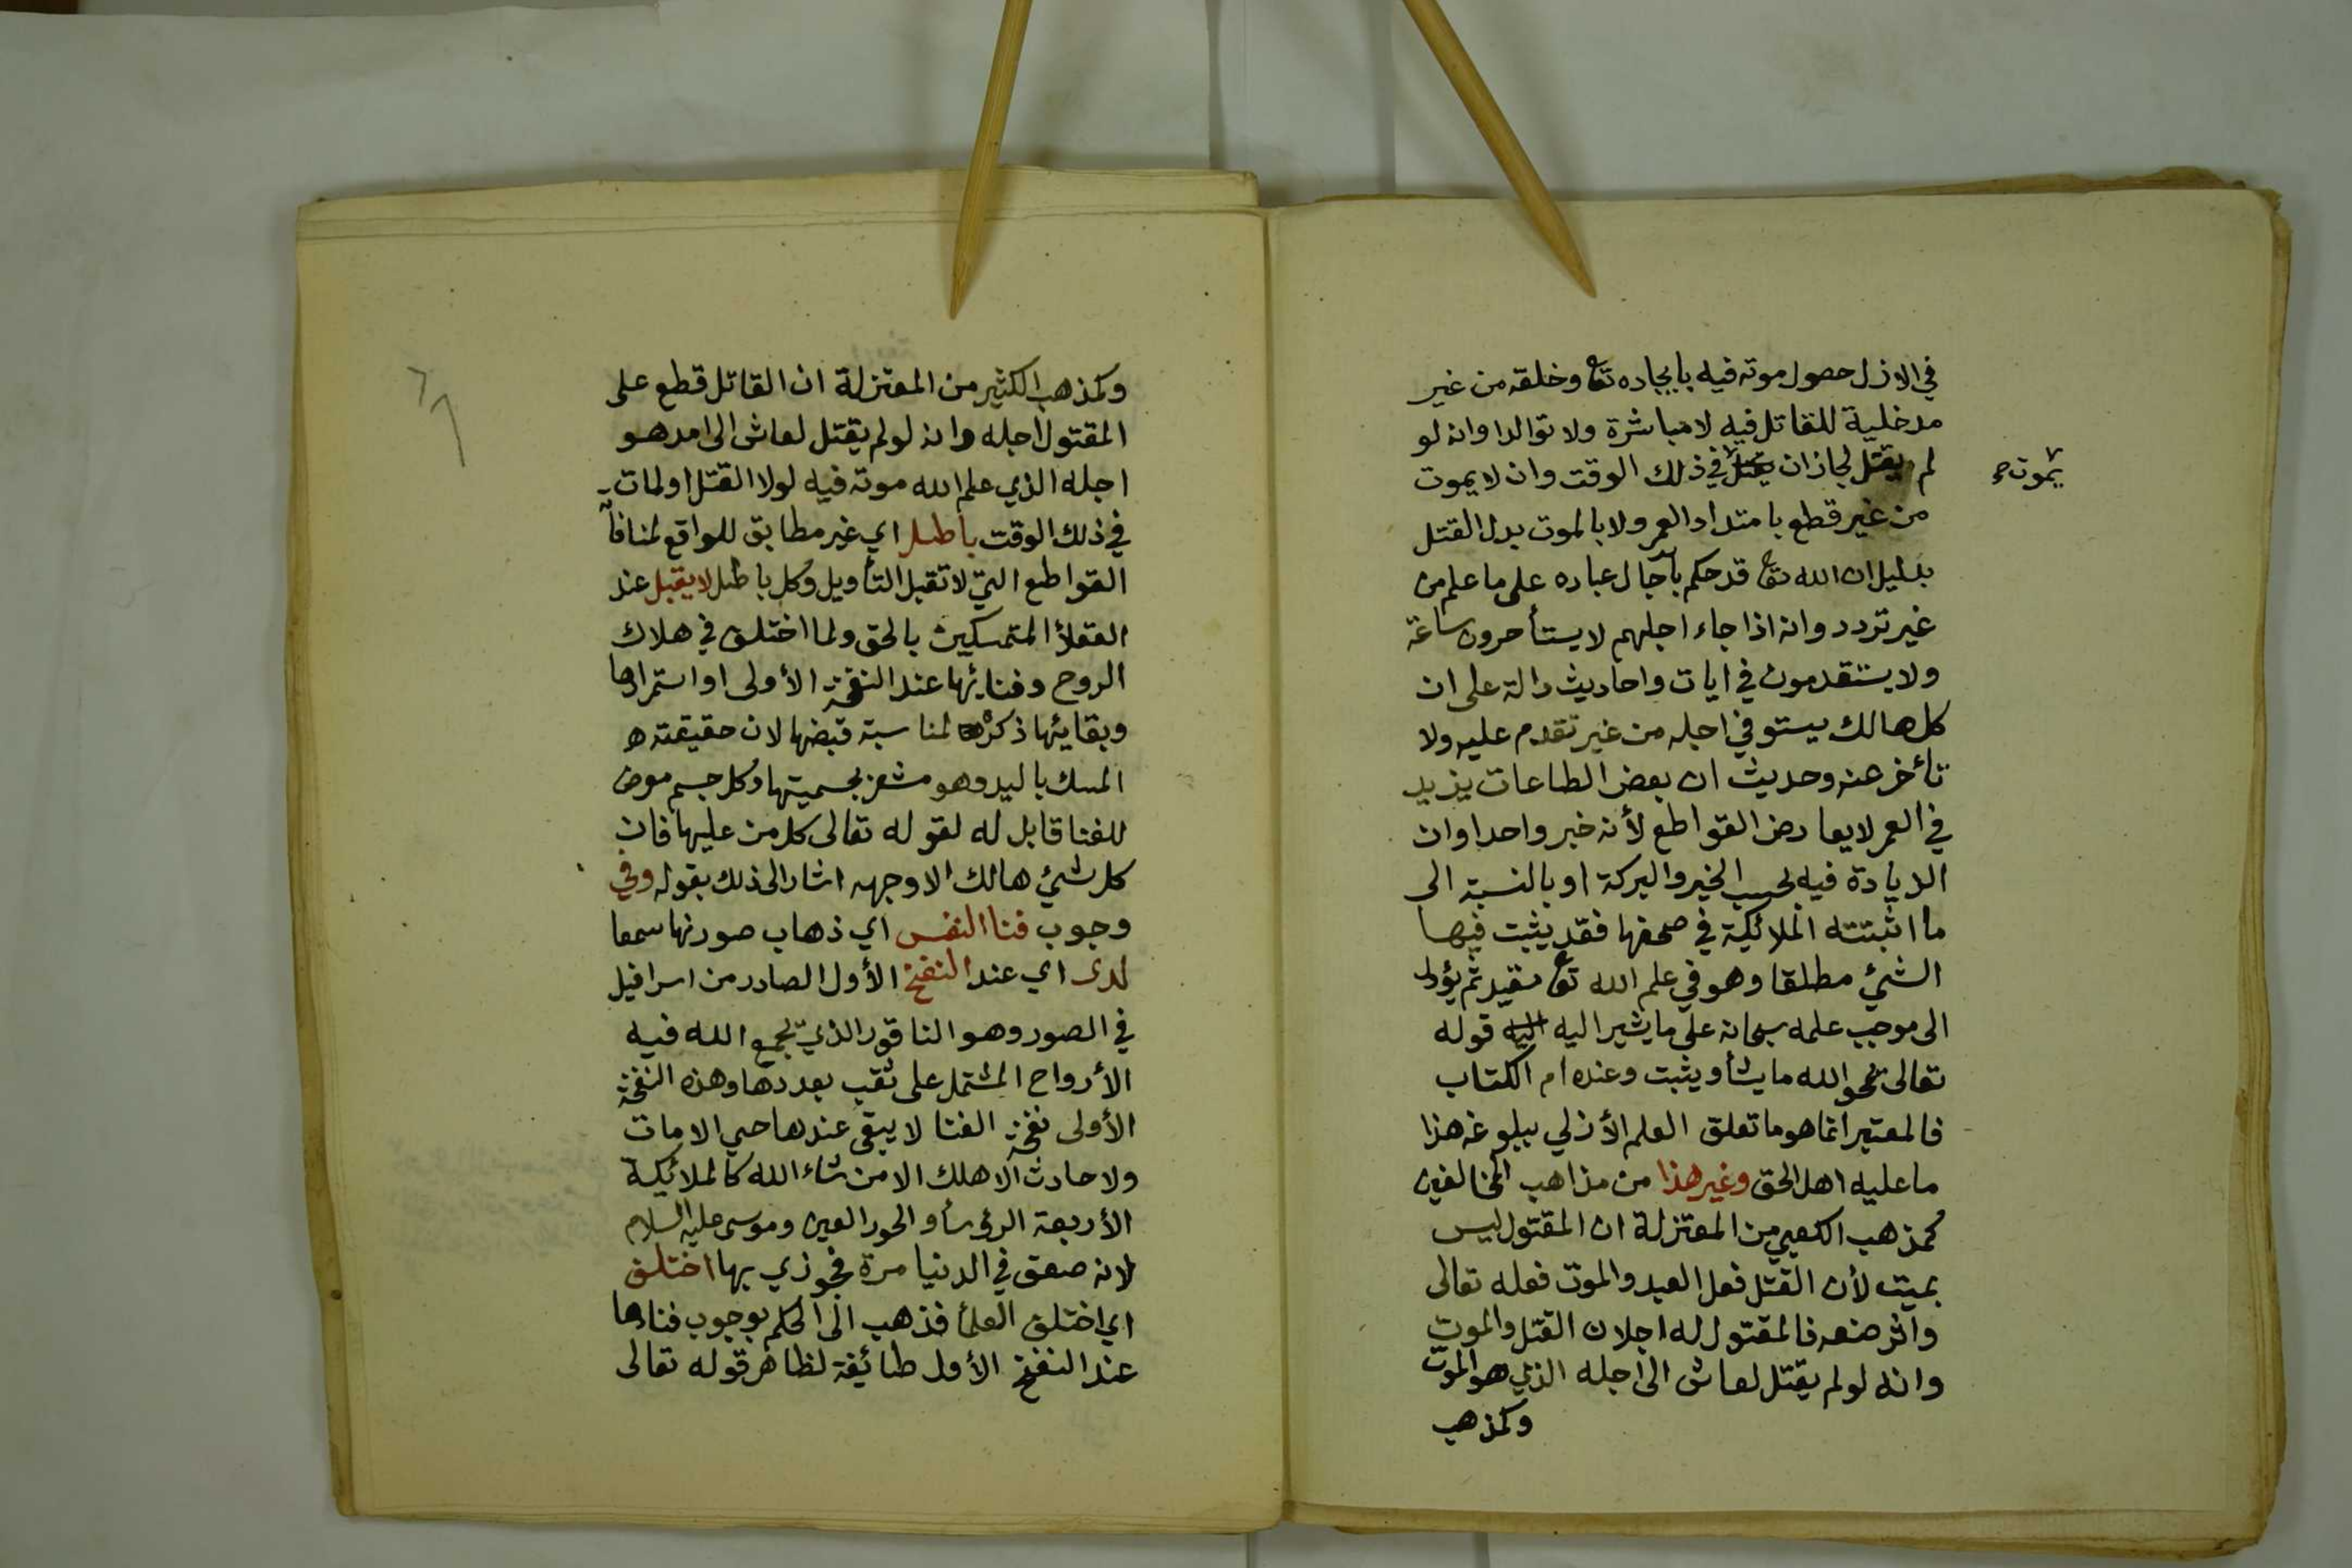 في الازل حصول موته فيه بايجاده تع وخلقه من غير
مدخلية للقاتل فيه لا مباشرة ولا توالدا وانه لو
لم يقتل لجاز ان في ذلك الوقت وان لا يموت
يموت صح
من غير قطع بامتداد العمر ولا بالموت بدل القتل
بدليل ان الله تع قد حكم بآجال عباده على ما علم من
غير تردد وانه اذا جاء اجلهم لا يستأخرون ساعة
ولا يستقدمون في ايات واحاديث دالة على ان
كل هالك يستوفي اجله من غير تقدم عليه ولا
تأخر عنه وحديث ان بعض الطاعات يزيد
في العمر لا يعارض القواطع لأنه خبر واحد او ان
الزيادة فيه بحسب الخير والبركة او بالنسبة الى
ما اثبتته الملائكية في صحفها فقد يثبت فيها
الشئ مطلقا وهو في علم الله تع مقيد ثم يؤل
الى موجب علمه سبحانه على ما يشير اليه اليه قوله
تعالى يمحو الله ما يشأ ويثبت وعنده ام الكتاب
فالمعتبر انما هو ما تعلق العلم الأزلي ببلوغه هذا
ما عليه اهل الحق وغير هذا من مذاهب المخالفين
كمذهب الكعبي من المعتزلة ان المقتول ليس
بميت لأن القتل فعل العبد والموت فعله تعالى
واثر صنعه فالمقتول له اجلان القتل والموت
وانه لو لم يقتل لعاش الى اجله الذي هو الموت
وكمذهب
وكمذهب الكثير من المعتزلة ان القاتل قطع على
المقتول اجله وانه لو لم يقتل لعاش الى امد هو
اجله الذي علم الله موته فيه لولا القتل او لمات
في ذلك الوقت باطل اي غير مطابق للواقع لمنافاة
القواطع التي لا تقبل التأويل وكل باطل لا يقبل عند
العقلأ المتمسكين بالحق ولما اختلف في هلاك
الروح وفنائها عند النفخة الأولى او استمرارها
وبقائها ذكره لمناسبة قبضها لان حقيقته ه
المسك باليد وهو مشعر بجسميتها وكل جسم معرض
للفنا قابل له لقوله تعالى كل من عليها فان
كل شئ هالك الا وجهه اشار الى ذلك بقوله وفي
وجوب فنا النفس اي ذهاب صورتها سمعا
لدى اي عند النفخ الأول الصادر من اسرافيل
في الصور وهو الناقور الذي يجمع الله فيه
الأرواح المشتمل على ثقب بعددها وهذه النفخة
الأولى نفخة الفنا لا يبقى عندها حي الا مات
ولا حادث الا هلك الا من شاء الله كالملائكية
الأربعة الرؤسأ والحور العين وموسى عليه السلام
لانه صعق في الدنيا مرة فجوزي بها اختلف
اي اختلف العلمأ فذهب الى الحكم بوجوب فناها
عند النفخ الأول طائفة لظاهر قوله تعالى